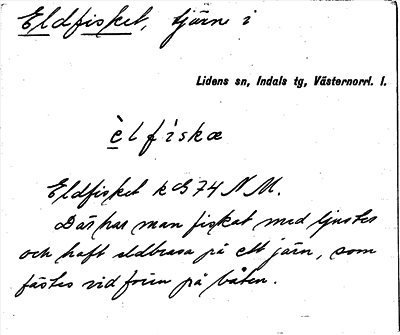 Eldfisket, tjärn i
Lidens sn, Indals tg, Västernorrl. l.
è̱lfi̇skæ
Eldfisket k G 74 N M.
Där har man fiskat med ljuster
och haft eldbrasa på ett järn, som
fästes vid fören på båten.